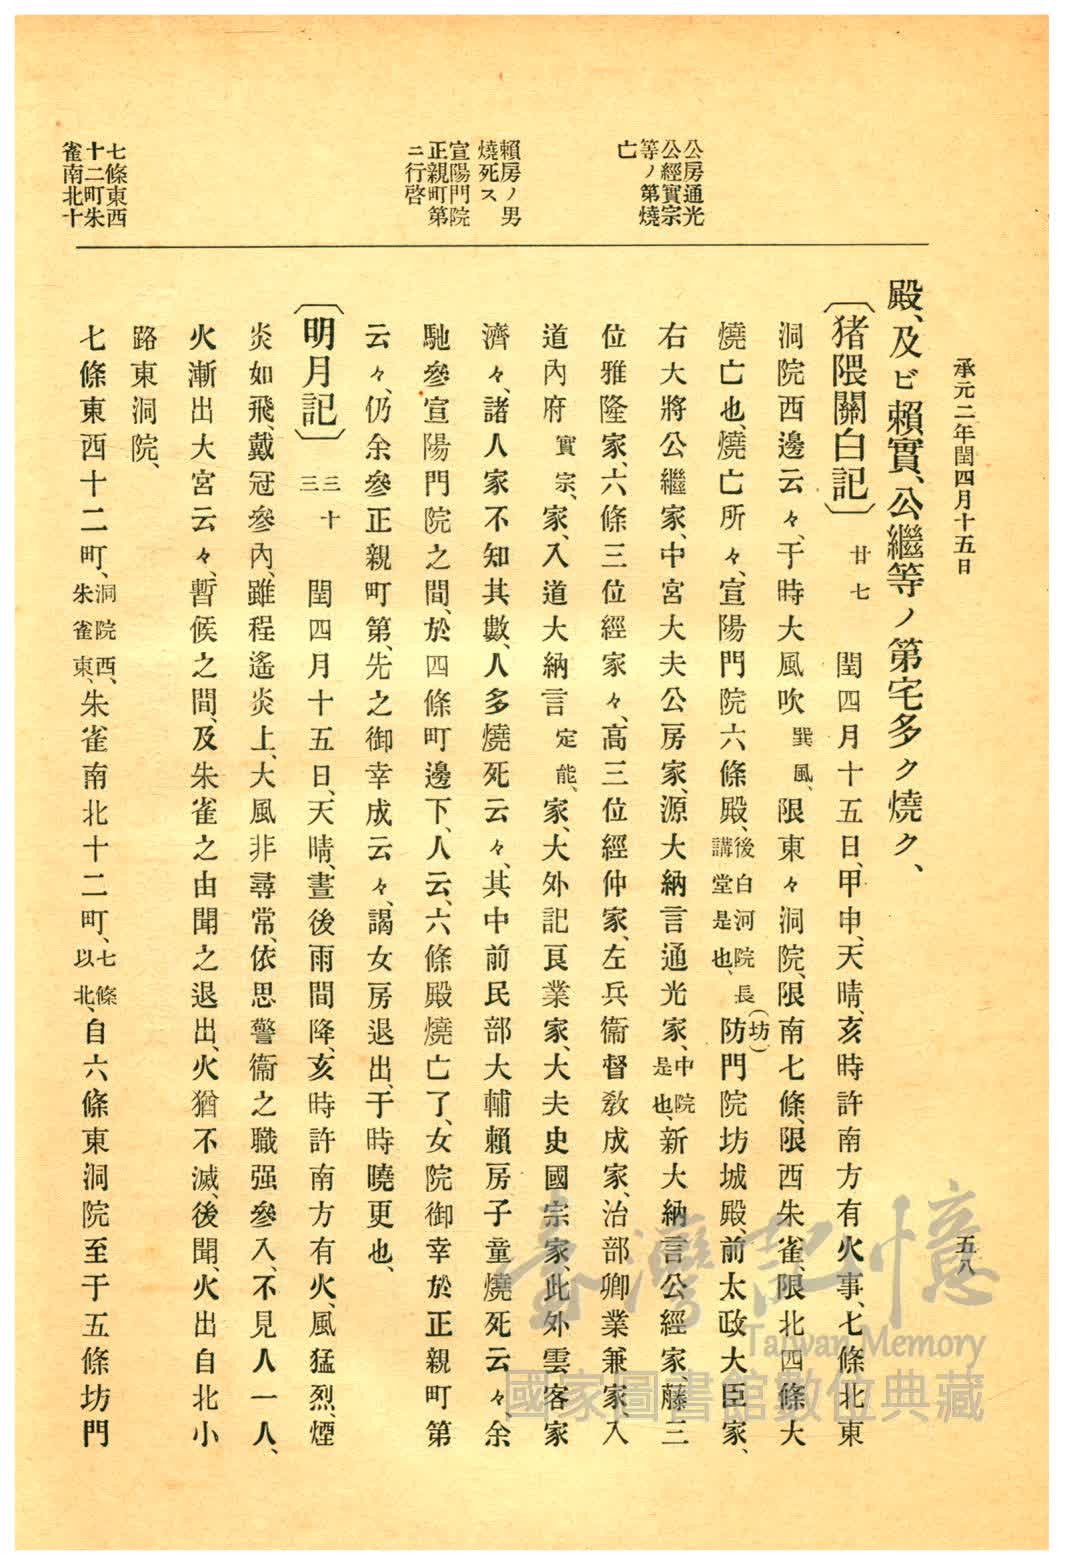 承元二年閏四月十五日
五八
公房通光
公經實宗
等ノ第燒
亡
賴房ノ男
燒死ス
宣陽門院
正親町第
ニ行啓
七條東西
十二町朱
雀南北十
殿、及ビ賴實、公繼等ノ第宅多ク燒ク、
〔猪隈關白記〕 廿七 閏四月十五日、甲申、天晴、亥時許南方有火事、七條北東
洞院西邊云々、于時大風吹巽風、限東々洞院、限南七條、限西朱雀、限北四條大
燒亡也、燒亡所々、宣陽門院六條殿、後白河院長講堂是也、防(坊)門院坊城殿、前太政大臣家、
右大將公繼家、中宮大夫公房家、源大納言通光家、中院是也、新大納言公經家、藤三
位雅隆家、六條三位經家々、高三位經仲家、左兵衞督敎成家、治部卿業兼家、入
道內府實宗、家、入道大納言定能、家、大外記良業家、大夫史國宗家、此外雲客家
濟々、諸人家不知其數、人多燒死云々、其中前民部大輔賴房子童燒死云々、余
馳參宣陽門院之間、於四條町邊下、人云、六條殿燒亡了、女院御幸於正親町第
云々、仍余參正親町第、先之御幸成云々、謁女房退出、于時曉更也、
〔明月記〕 三十三 閏四月十五日、天晴、晝後雨間降、亥時許南方有火、風猛烈、煙
炎如飛、戴冠參內、雖程遙炎上、大風非尋常、依思警衞之職强參入、不見人一人、
火漸出大宮云々、暫候之間、及朱雀之由聞之退出、火猶不滅、後聞、火出自北小
路東洞院、
七條東西十二町、洞院西、朱雀東、朱雀南北十二町、七條以北、自六條東洞院至于五條坊門
臺灣記憶
Taiwan Memory
國家圖書館數位典藏